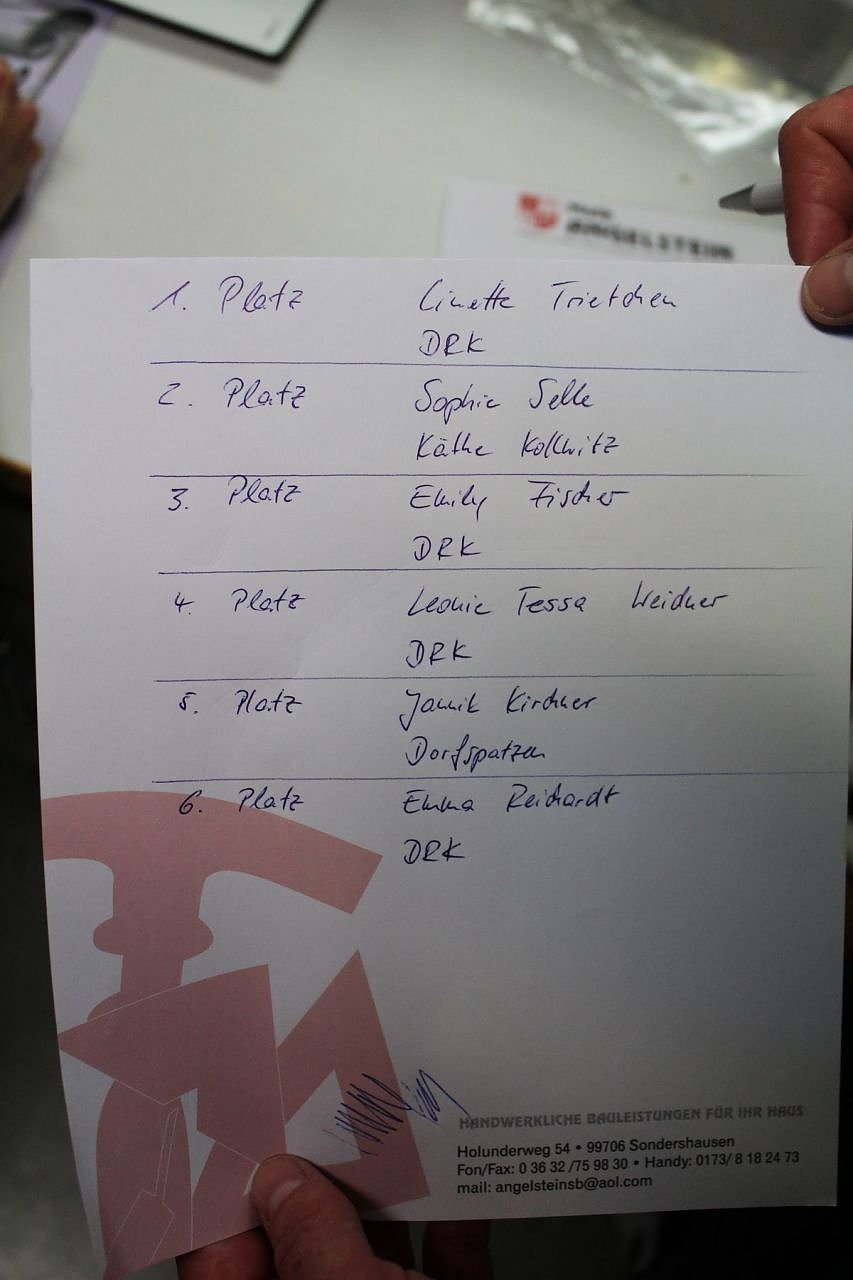 ANGELSTEIN
1. Platz Linette Trietchen
DRK
2. Platz Sophie Selle
Käthe Kollwitz
3. Platz Emily Fischer
DRK
4. Platz Leonie Tessa Weidner
DRK
5. Platz Jannik Kirchner
Dorfspatzen
6. Platz Emma Reichardt
DRK
HANDWERKLICHE BAULEISTUNGEN FÜR IHR HAUS
Holunderweg 54 • 99706 Sondershausen
Fon/Fax: 0 36 32 /75 98 30 • Handy: 0173/ 8 18 24 73
mail: angelsteinsb@aol.com